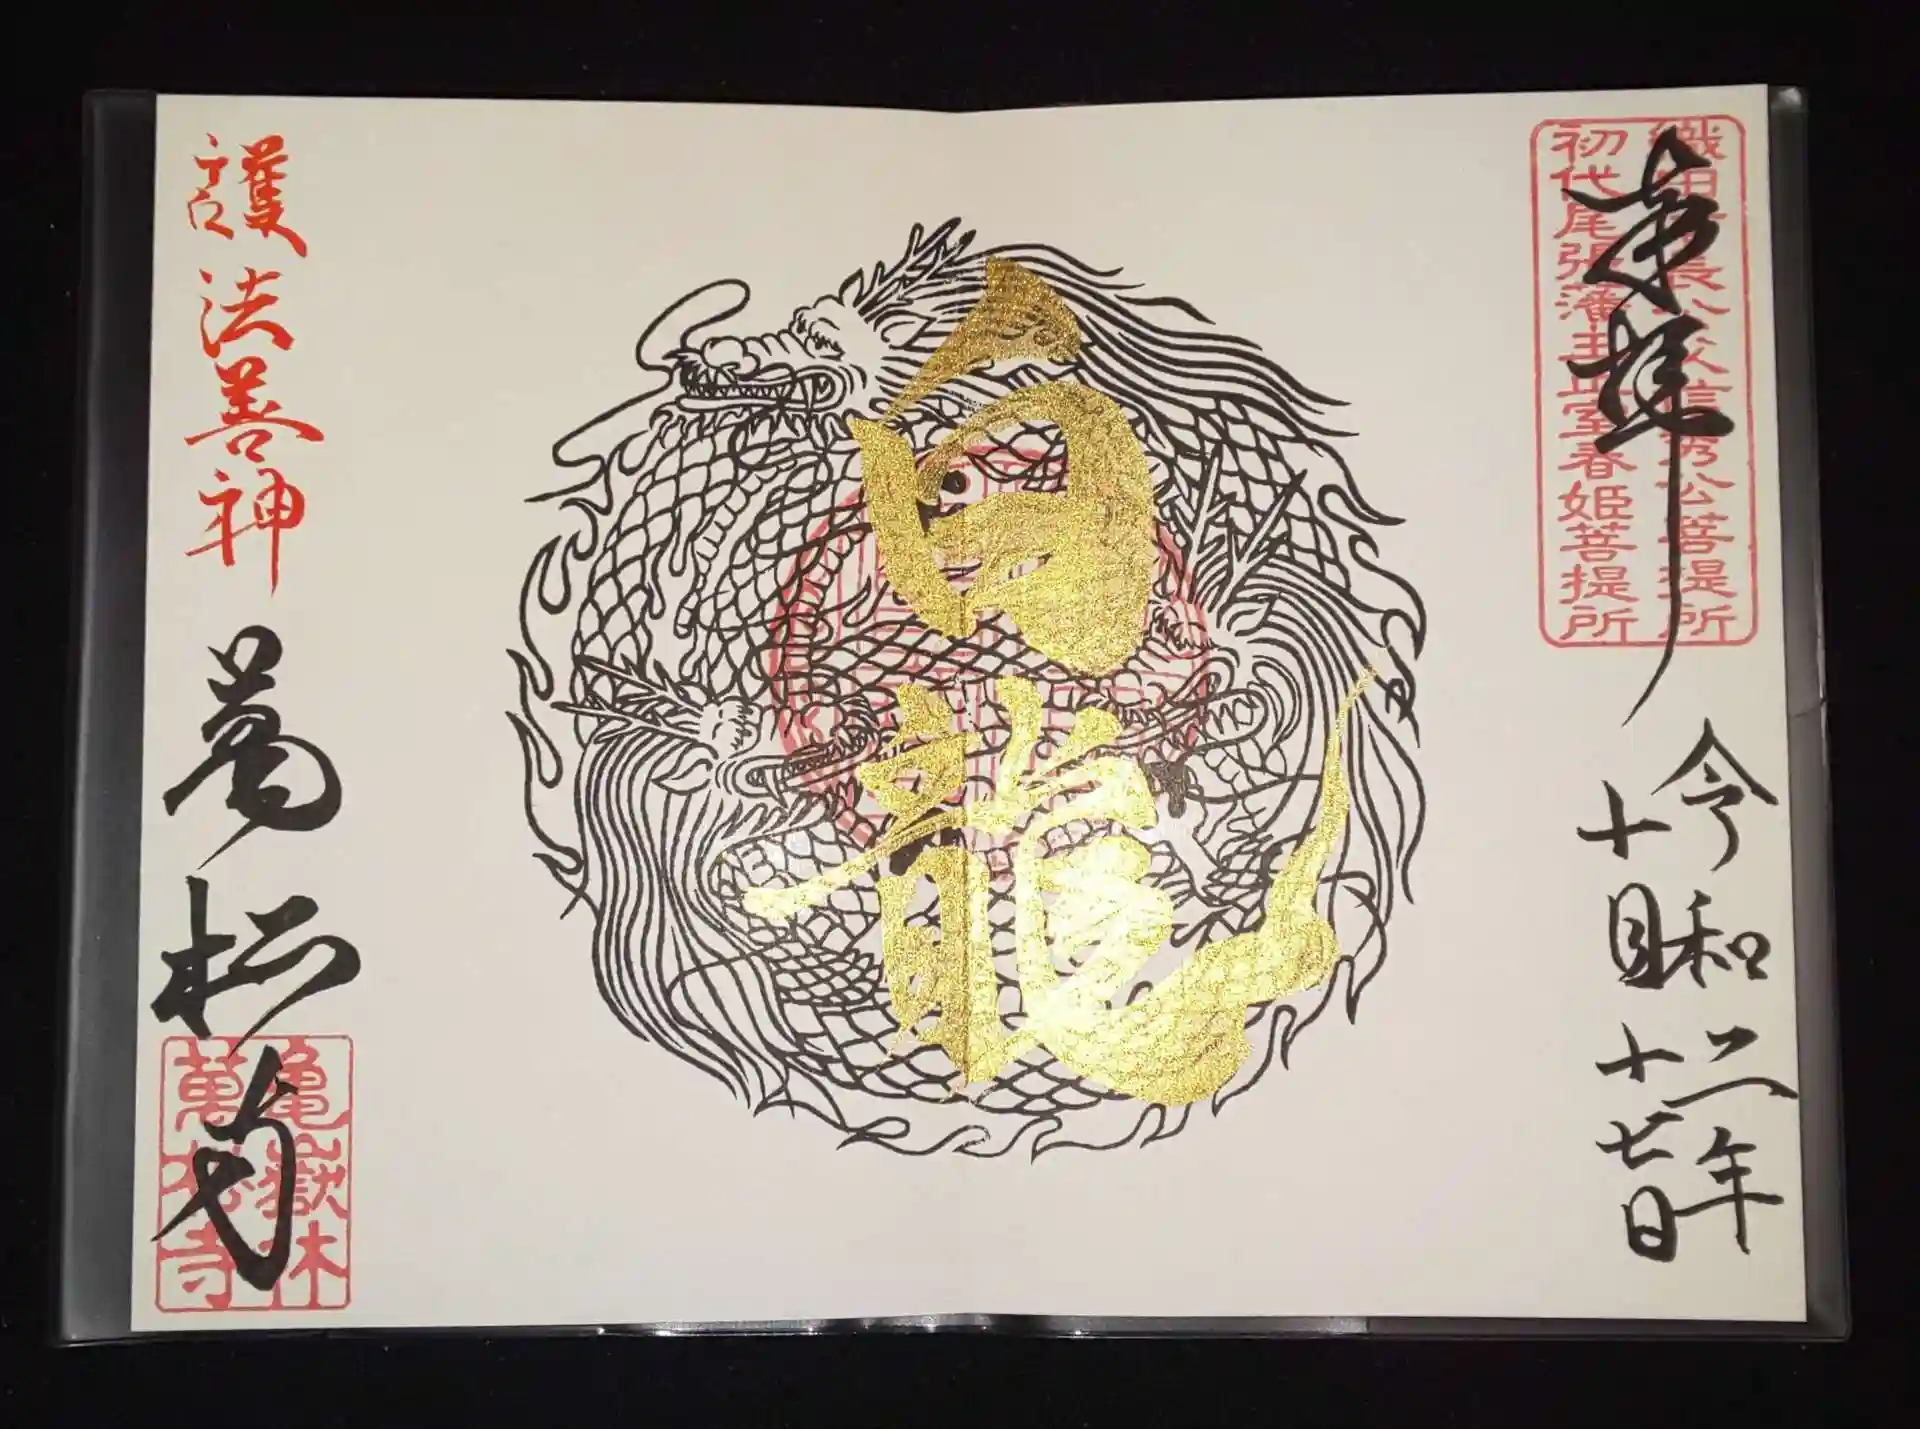 奉拝
織田信長公父信秀公菩提所
初代尾張藩主正室春姫菩提所
令和 年
十月十七日
白龍
護法善神
萬松寺
亀嶽林
萬松寺